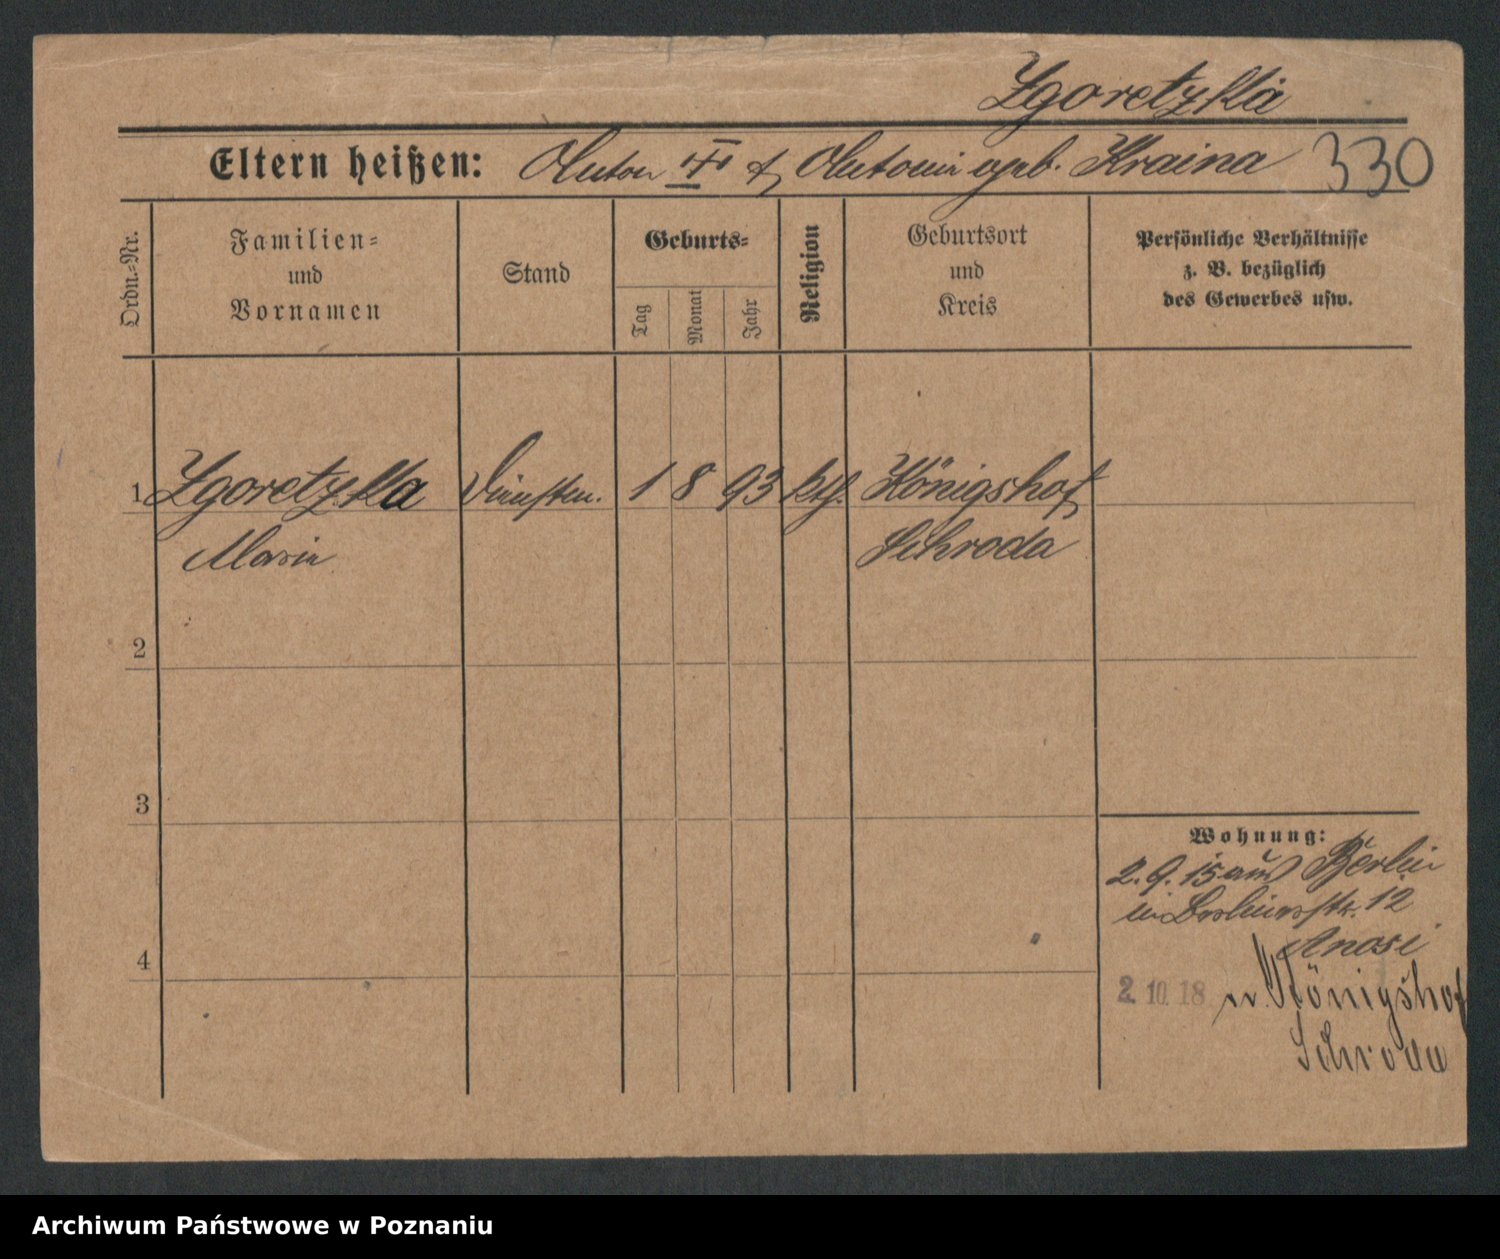 Zgoretzka
Eltern heißen: Anton & Antonia geb. Kraina 330
Ordn.=Nr.
Familien=
und
Vornamen
Stand
Geburts=
Tag
Monat
Jahr
Religion
Geburtsort
und
Kreis
Persönliche Verhältnisse
z. B. bezüglich
des Gewerbes usw.
1 Zgoretzka 1 8 93 kth. Königshof
Maria Schroda
2
3
4
Wohnung:
2. 9. 15 aus Berlin
12
2. 10. 18 n. Königshof
Schroda
Archiwum Państwowe w Poznaniu